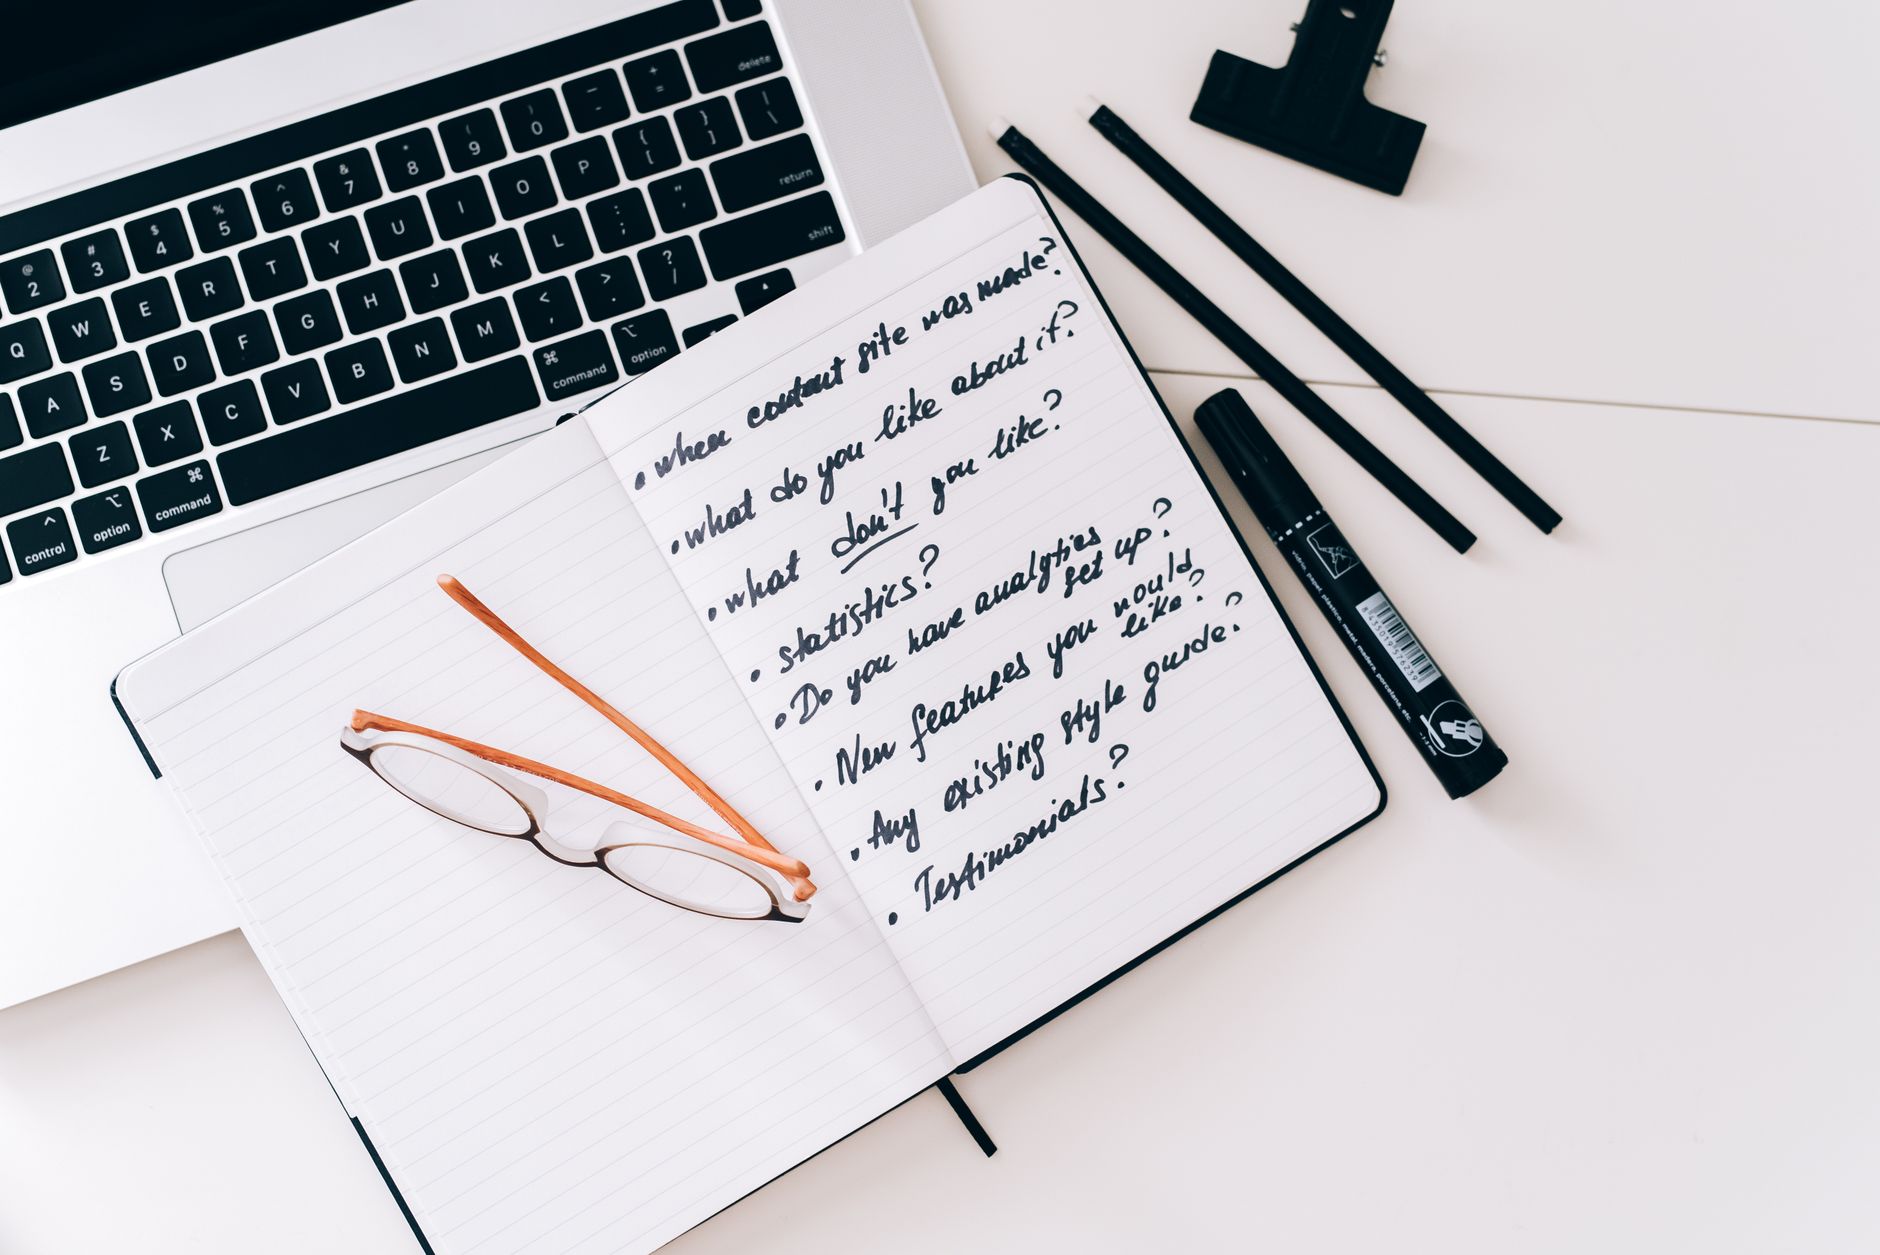 delete
+ =
_ -
) 0
( 9
* 8
& 7
^ 6
% 5
$ 4
# 3
@ 2
Q W E R T Y U I O P { [ } ] | \
return
A S D F G H J K L : ; " '
shift
Z X C V B N M < , > . ? /
^ control
⌥ option
⌘ command
⌘ command
⌥ option
• when content site was made?
• what do you like about it?
• what don't you like?
• statistics?
• Do you have analytics
set up?
• New features you would
like?
• Any existing style guide?
• Testimonials?
vidrio, papel, plastico, metal, madera, porcelana, etc.
8 435019 576239